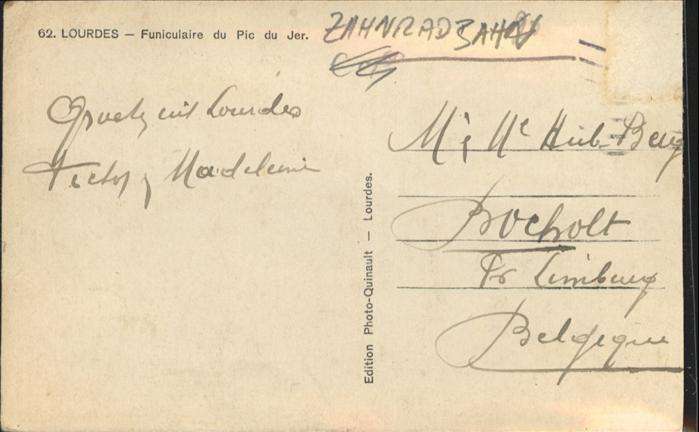 62. LOURDES — Funiculaire du Pic du Jer.
ZAHNRADBAHN
Groet uit Lourdes
Madeleine
Mr & Me Hub-
Bocholt
Pr Limburg
Belgique
Edition Photo-Quinault — Lourdes.